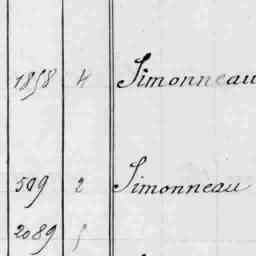 1858 4 Simonneau
509 2 Simonneau
2089